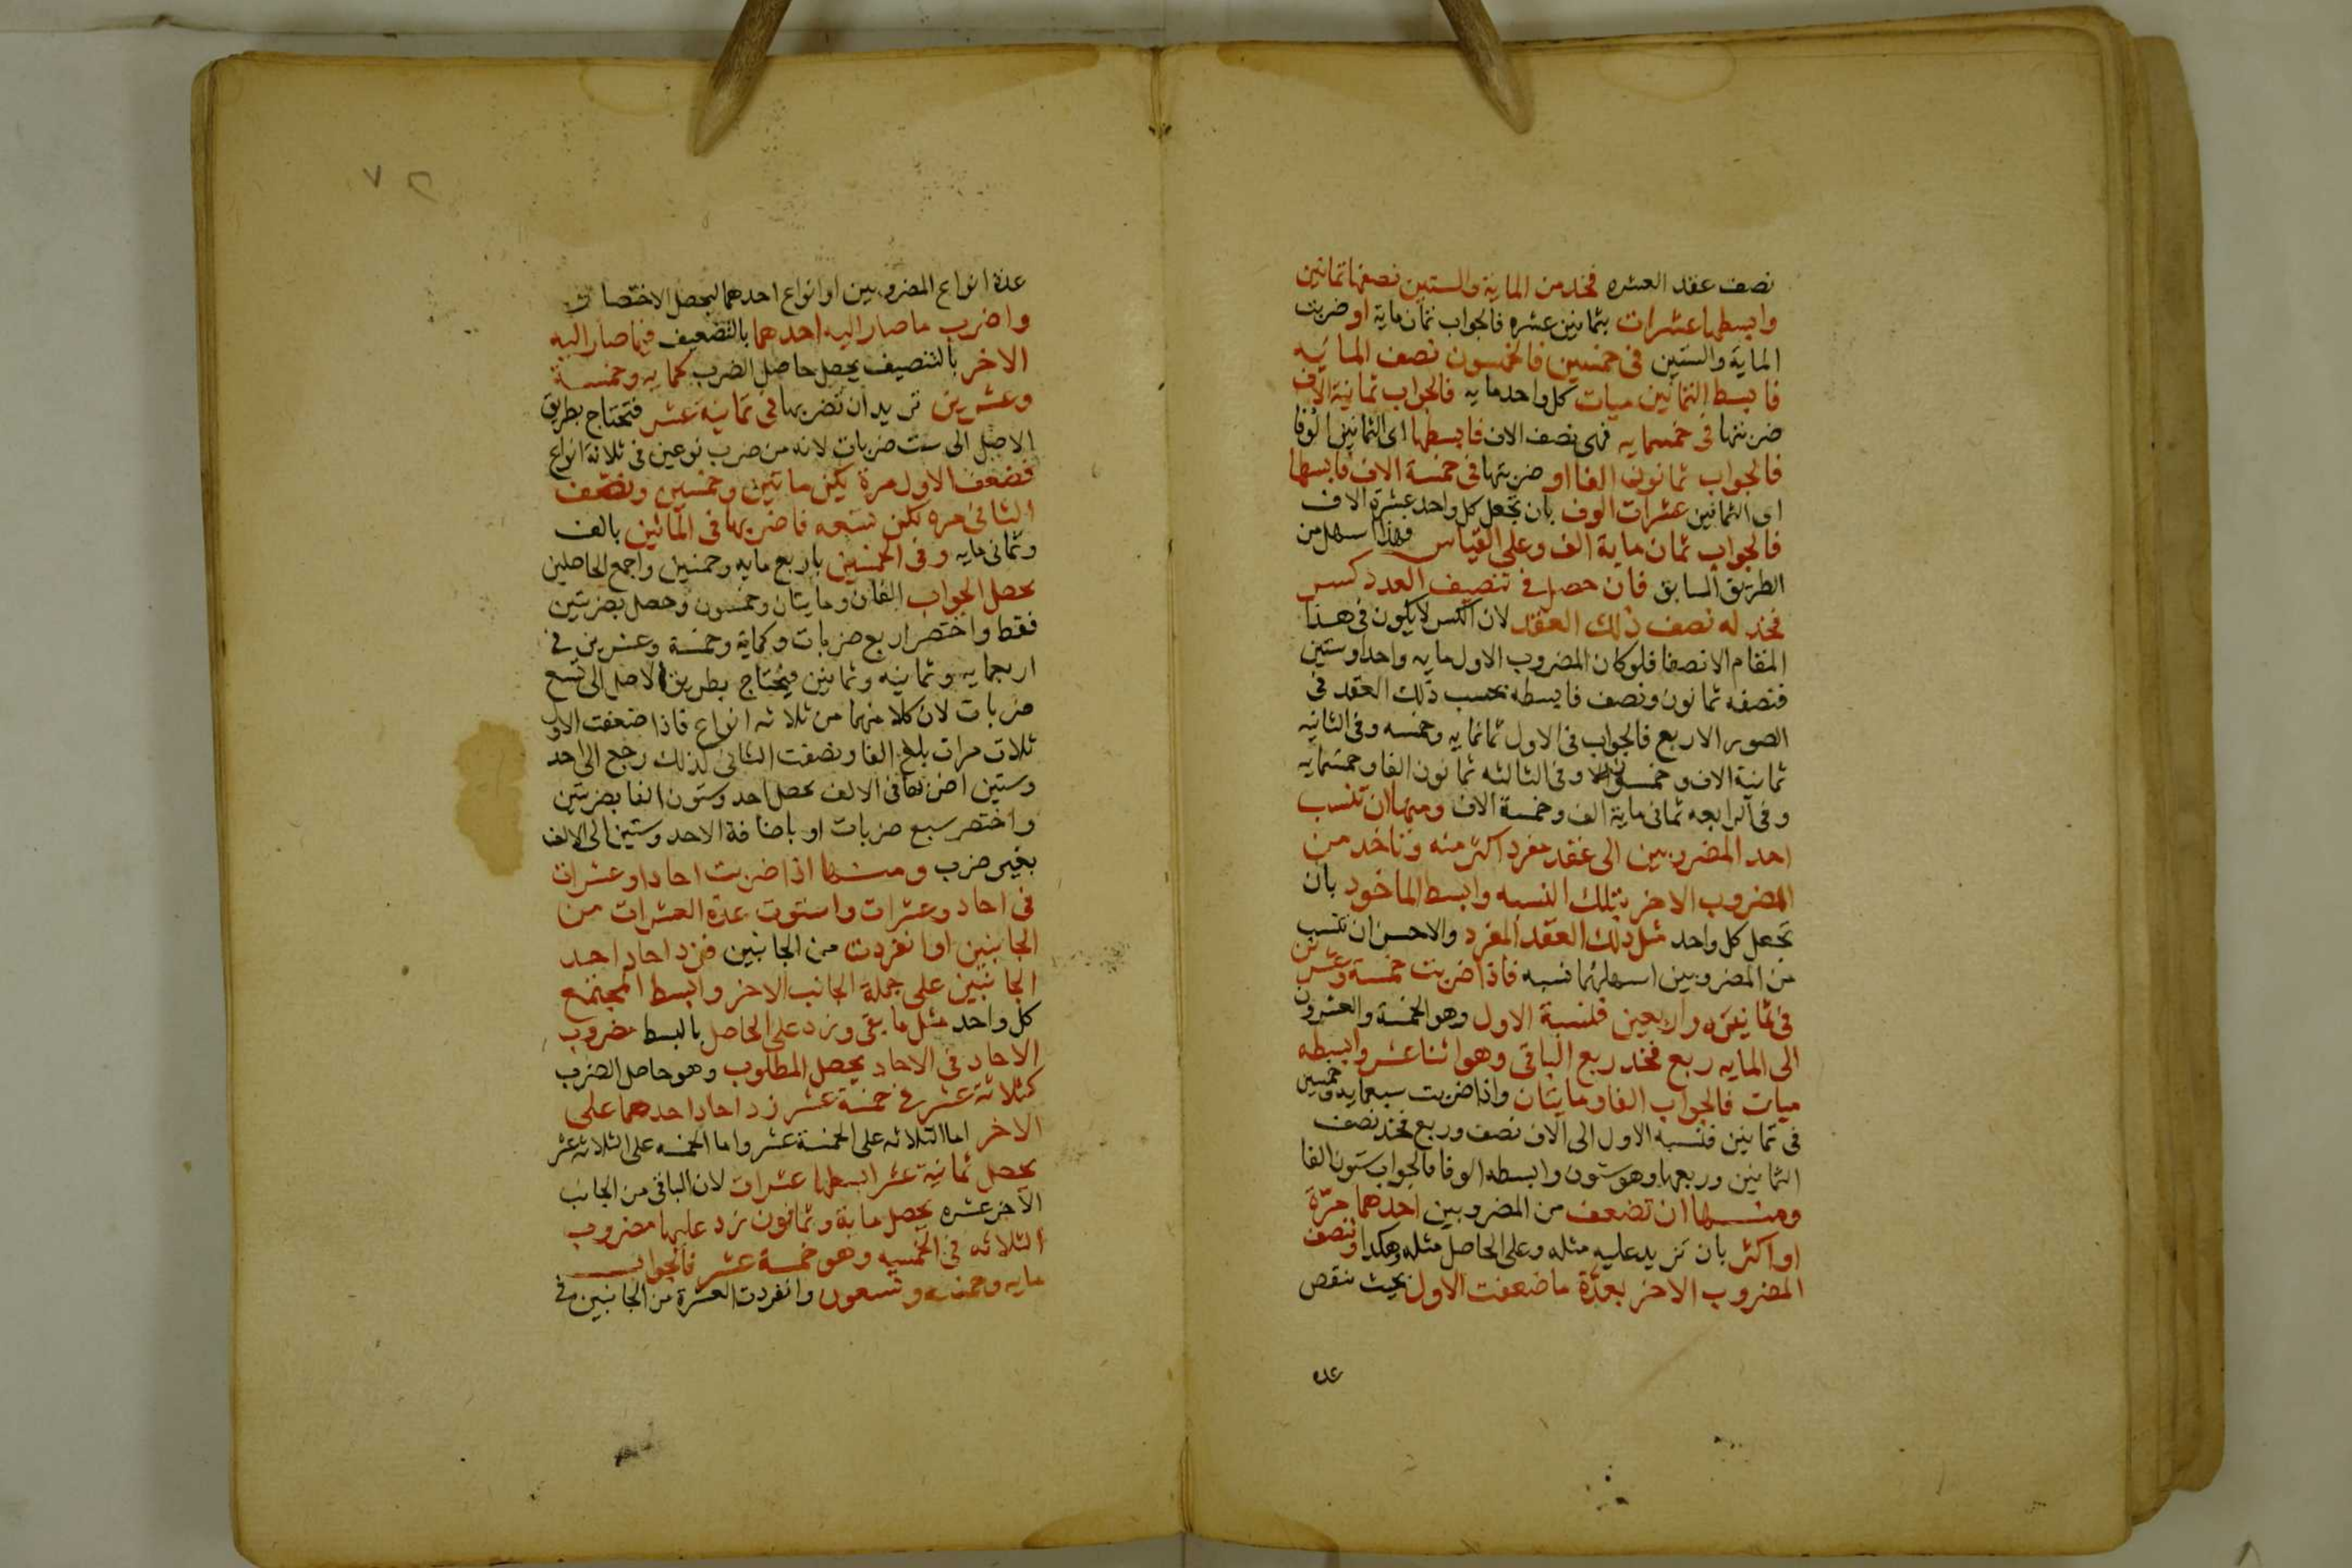 نصف عقد العشره فخد من الماية والستين نصفها ثمانين
وابسطها عشرات بثمانين عشره فالجواب ثمان ماية او ضربت
الماية والستين في خمسين فالخمسون نصف المائيه
فابسط الثمانين ميات كل واحد مايه فالجواب ثمانية الاف
ضربتها في خمسمايه فهي نصف الاف فابسطها اى الثمانين الوفا
فالجواب ثمانون الفا او ضربتها في خمسة الاف فابسطها
اى الثمانين عشرات الوف بان تجعل كل واحد عشرة الاف
فالجواب ثمان ماية الف وعلى القياس فهذا اسهل من
الطريق السابق فان حصل في تنصيف العدد كسر
فخد له نصف ذلك العقد لان الكسر لا يكون في هذا
المقام الا نصفا فلو كان المضروب الاول مايه واحدا وستين
فنصفه ثمانون ونصف فابسطه بحسب ذلك العقد في
الصور الاربع فالجواب في الاول ثمانمايه وخمسه وفي الثانيه
ثمانية الاف وخمسون وفي الثالثه ثمانون الفا وخمسمايه
وفي الرابعه ثمانى ماية الف وخمسة الاف ومنها ان تنسب
احد المضروبين الى عقد مفرد اكثر منه وتاخد من
المضروب الاخر بتلك النسبه وابسط الماخود بان
تجعل كل واحد مثل ذلك العقد المفرد والاحسن ان تنسب
من المضروبين اسهلهما نسبه فاذا ضربت خمسة وعشرين
في ثمانيه واربعين فلنسبة الاول وهو الخمسة والعشرون
الى المايه ربع فخد ربع الباقى وهو اثنا عشر وابسطه
ميات فالجواب الفا ومايتان واذا ضربت سبعمايه وخمسين
في ثمانين فنسبه الاول الى الاف نصف وربع فخد نصف
الثمانين وربعها وهو ستون وابسطه الوفا فالجواب ستون الفا
ومنها ان تضعف من المضروبين احدهما مرّة
او اكثر بان تزيد عليه مثله وعلى الحاصل مثله وهكدا وتنصف
المضروب الاخر بعدّة ما ضعفت الاول بحيث ننقص
عده
٧٢
عدة انواع المضروبين او انواع احدهما ليحصل الاختصار
واضرب ما صار اليه احدهما بالتضعيف فيما صار اليه
الاخر بالتنصيف يحصل حاصل الضرب كمايه وخمسة
وعشرين تريد ان تضربها في ثمانية عشر فتحتاج بطريق
الاصل الى ست ضربات لانه من ضرب نوعين في ثلاثة انواع
فضعف الاول مرة يكن مايتين وخمسين ونصف
الثاني مره يكن تسعه فاضربها في المائتين بالف
وثماني مايه وفي الخمسين باربع مايه وخمسين واجمع الحاصلين
يحصل الجواب الفان ومايتان وخمسون وحصل بضربتين
فقط واختصر اربع ضربات وكماية وخمسة وعشرين في
اربعمايه وثمانيه وثمانين فيحتاج بطريق الاصل الى تسع
ضربات لان كلا منهما من ثلاثه انواع فاذا ضعفت الاول
ثلاث مرات بلغ الفا ونصفت الثاني كذلك رجع الى احد
وستين اضربها في الالف يحصل احد وستون الفا بضربتين
واختصر سبع ضربات او باضافة الاحد وستين الى الالف
بغير ضرب ومنها اذا ضربت احادا وعشرات
في احاد وعشرات واستوت عدة العشرات من
الجانبين او انفردت من الجانبين فزد احاد احد
الجانبين على جملة الجانب الاخر وابسط المجتمع
كل واحد مثل ما بقى وزد على الحاصل بالبسط مضروب
الاحاد في الاحاد يحصل المطلوب وهو حاصل الضرب
كثلاثة عشر في خمسة عشر زد احاد احدهما على
الاخر اما الثلاثه على الخمسة عشر واما الخمسه على الثلاثه عشر
يحصل ثمانية عشر ابسطها عشرات لان الباقي من الجانب
الاخر عشره يحصل ماية وثمانون زد عليها مضروب
الثلاثه في الخمسه وهو خمسة عشر فالجواب
مايه وخمسه وتسعون وانفردت العشرة من الجانبين في